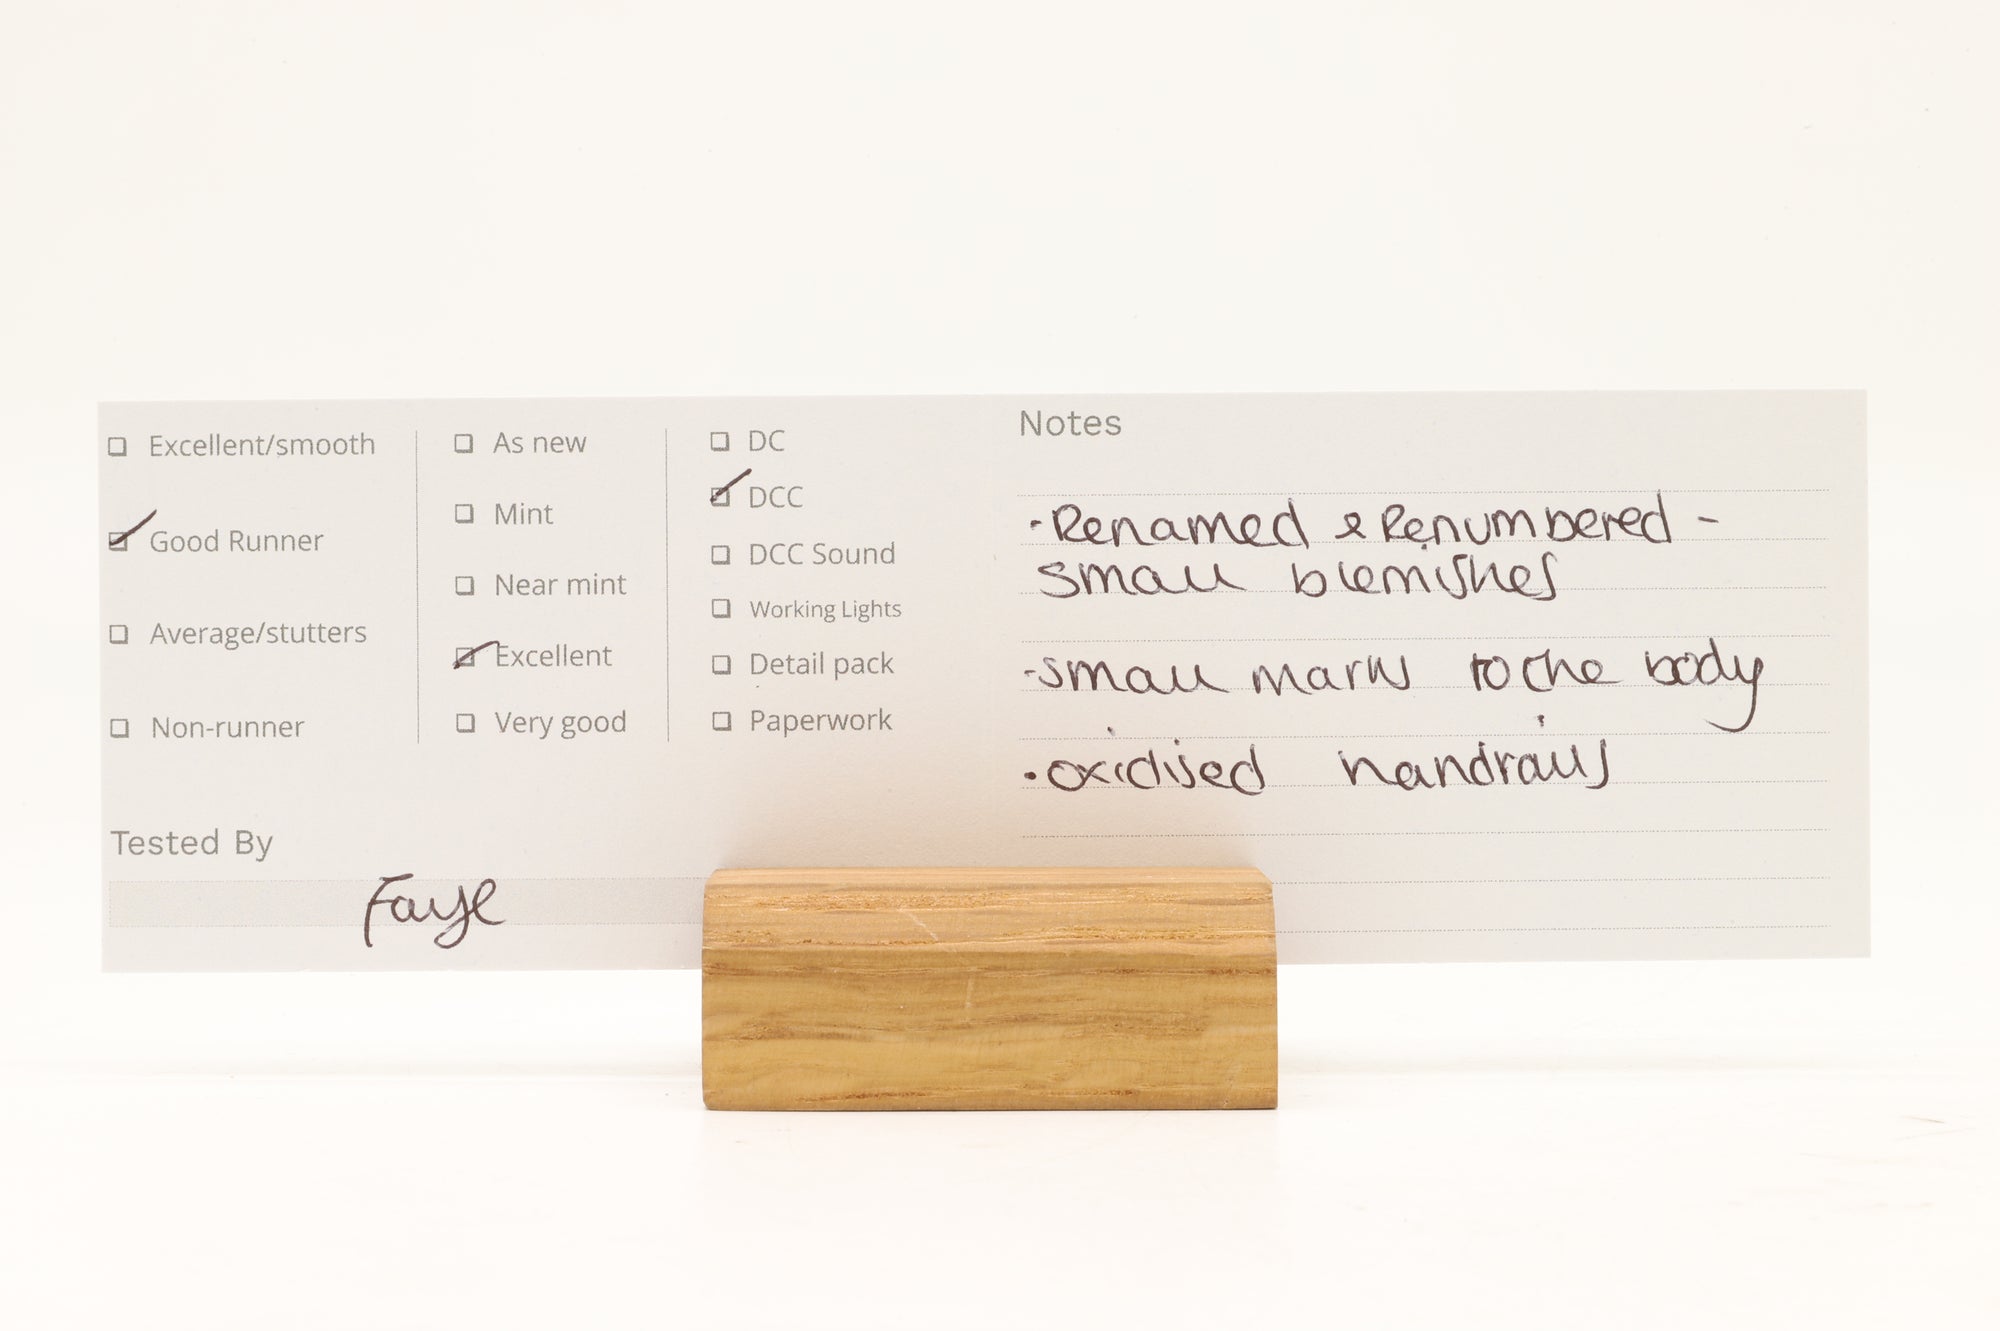 Excellent/smooth
Good Runner
Average/stutters
Non-runner
As new
Mint
Near mint
Excellent
Very good
DC
DCC
DCC Sound
Working Lights
Detail pack
Paperwork
Tested By
Faye
Notes
·Renamed & Renumbered -
small blemishes
-small marks to the body
·oxidised handrails